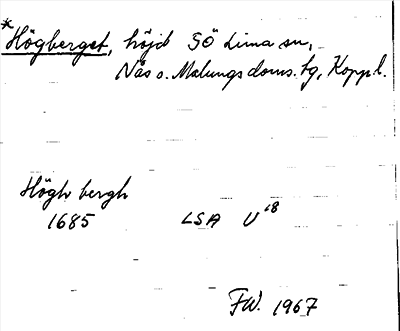 *Högberget, höjd SÖ Lima sn,
Nås o. Malungs doms. tg, Koppl.
Högh bergh
1685 LSA U18
FW. 1967